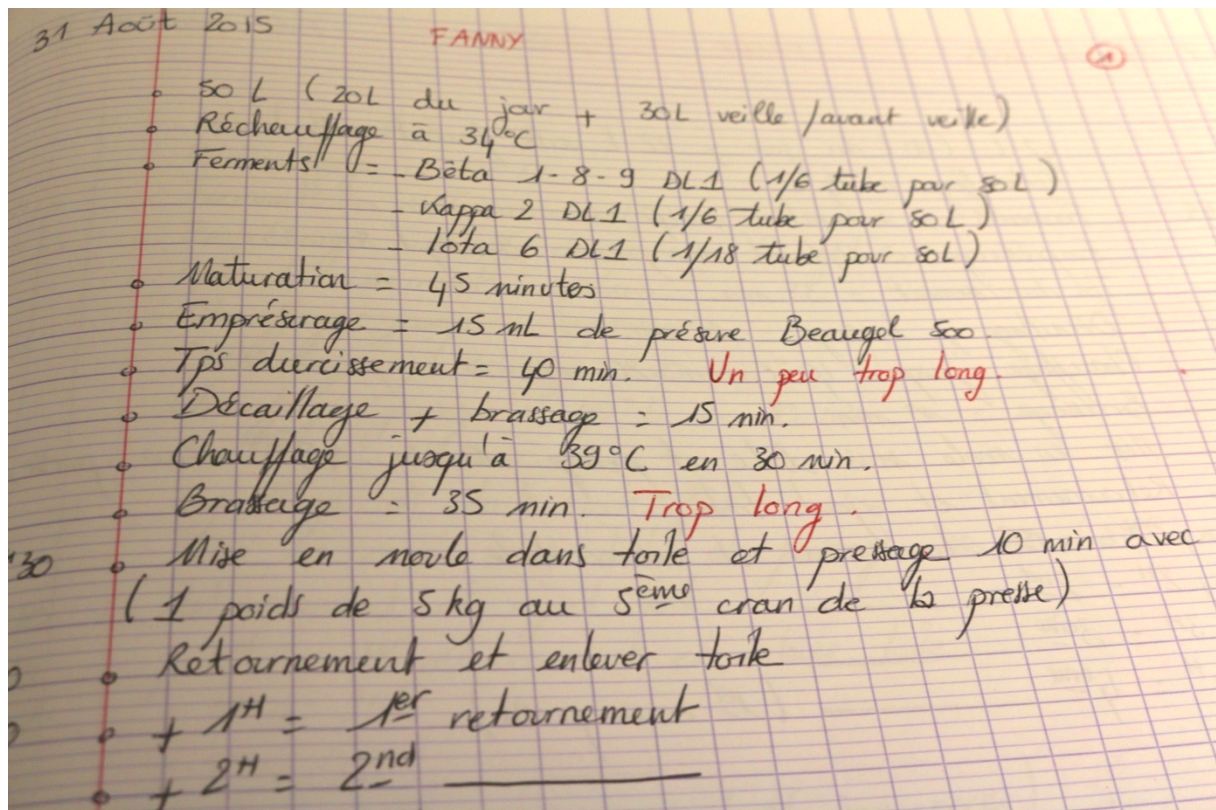 31 Août 2015 FANNY 1
50 L (20L du jour + 30L veille / avant veille)
Réchauffage à 34°C
Ferments = - Béta 1-8-9 DL1 (1/6 tube pour 50L)
- Kappa 2 DL1 (1/6 tube pour 50L)
- Iota 6 DL1 (1/18 tube pour 50L)
Maturation = 45 minutes
Emprésurage = 15 mL de présure Beaugel 500.
Tps durcissement = 40 min. Un peu trop long.
Décaillage + brassage = 15 min.
Chauffage jusqu'à 39°C en 30 min.
Brassage = 35 min. Trop long.
30 Mise en moule dans toile et pressage 10 min avec
(1 poids de 5 kg au 5ème cran de la presse)
Retournement et enlever toile
+ 1H = 1er retournement
+ 2H = 2nd